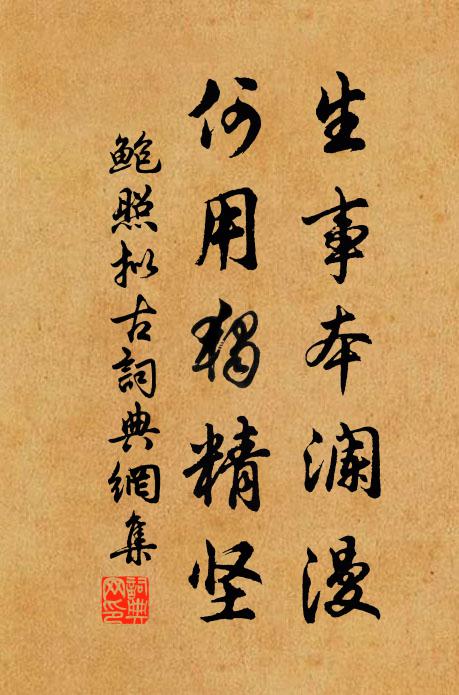 生事本澜漫
何用独精坚
鲍照拟古詞典網集
詞典网印